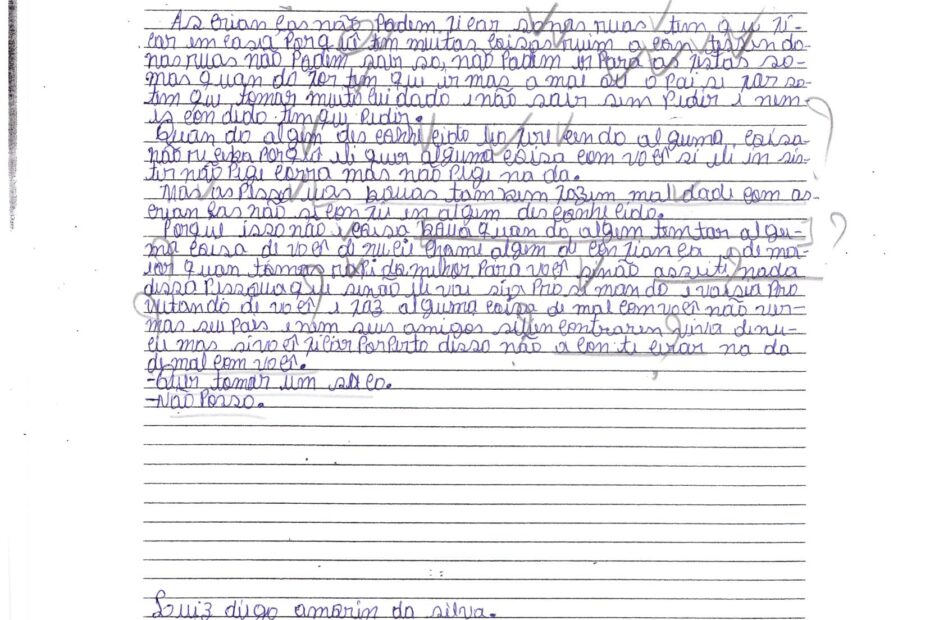 As crian ças não Podem zicar so nas ruas tem que zi-
car em casa Porquê tem muitas coisas ruim a con tessendo
nas ruas não Podim sair so, não Padim ir Para as zestas so-
mas quan do zor tem qui ir mas a mai ou o Pai si zar so-
tim qui tomar muito cuidado i não sair sem Pidir i nem
is con dido tim qui Pidir.
Quan do algim dis conhicido tio ziricendo alguma coisa
não ri ciba Porquê ili quir alguma coisa com você si ili in sis-
tir não Pigi corra mas não Pigi na da.
Mas as Pissouas bouas tambim zazim mal dadi com as
crian ças não si con zii im algim dis conhicido.
Porque isso não i coisa boua quan do algim tentar algu-
ma coisa di você di nu cii chami algim di con ziança i di ma-
ior quan tomais rapido milhor Para você si não assuti nada
dissa Pissoua qui si não ili vai si a Pro si mando i vai sia Pro
vitando di você i zaz alguma coisa di mal com você não vir-
mas seu Pais i nim sius amigos si lincontrarem viva dinu-
cii mas si você zicar Por Perto disso não a con ti cirar na da
di mal com você.
-Quir tomar um suco.
-Não Posso.
Luiz diego amorin da silva.